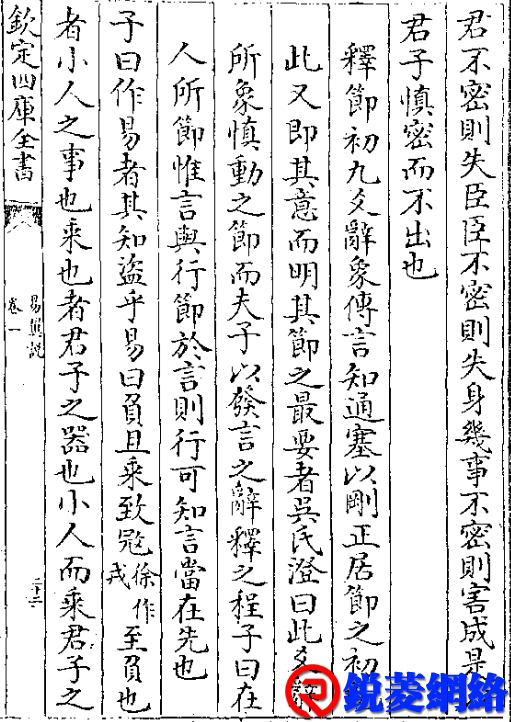 君不密則失臣臣不密則失身幾事不密則害成是
君子慎密而不出也
釋節初九爻辭象傳言知通塞以剛正居節之初
此又即其意而明其節之最要者吳氏澄曰此爻辭
所象慎動之節而夫子以發言之辭釋之程子曰在
人所節惟言與行節於言則行可知言當在先也
子曰作易者其知盜乎易曰負且乘致冦徐作戎至負也
者小人之事也乘也者君子之器也小人而乘君子之
欽定四庫全書
易翼説
卷一
二十二
鋭菱網絡